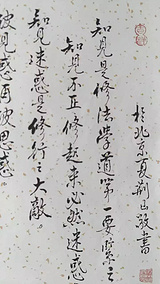 於北京夏荆山敬書
知見是修法學道第一要緊之
知見不正修起來必然迷惑
知見迷惑是修行之大敵。
破見惑再破思惑。